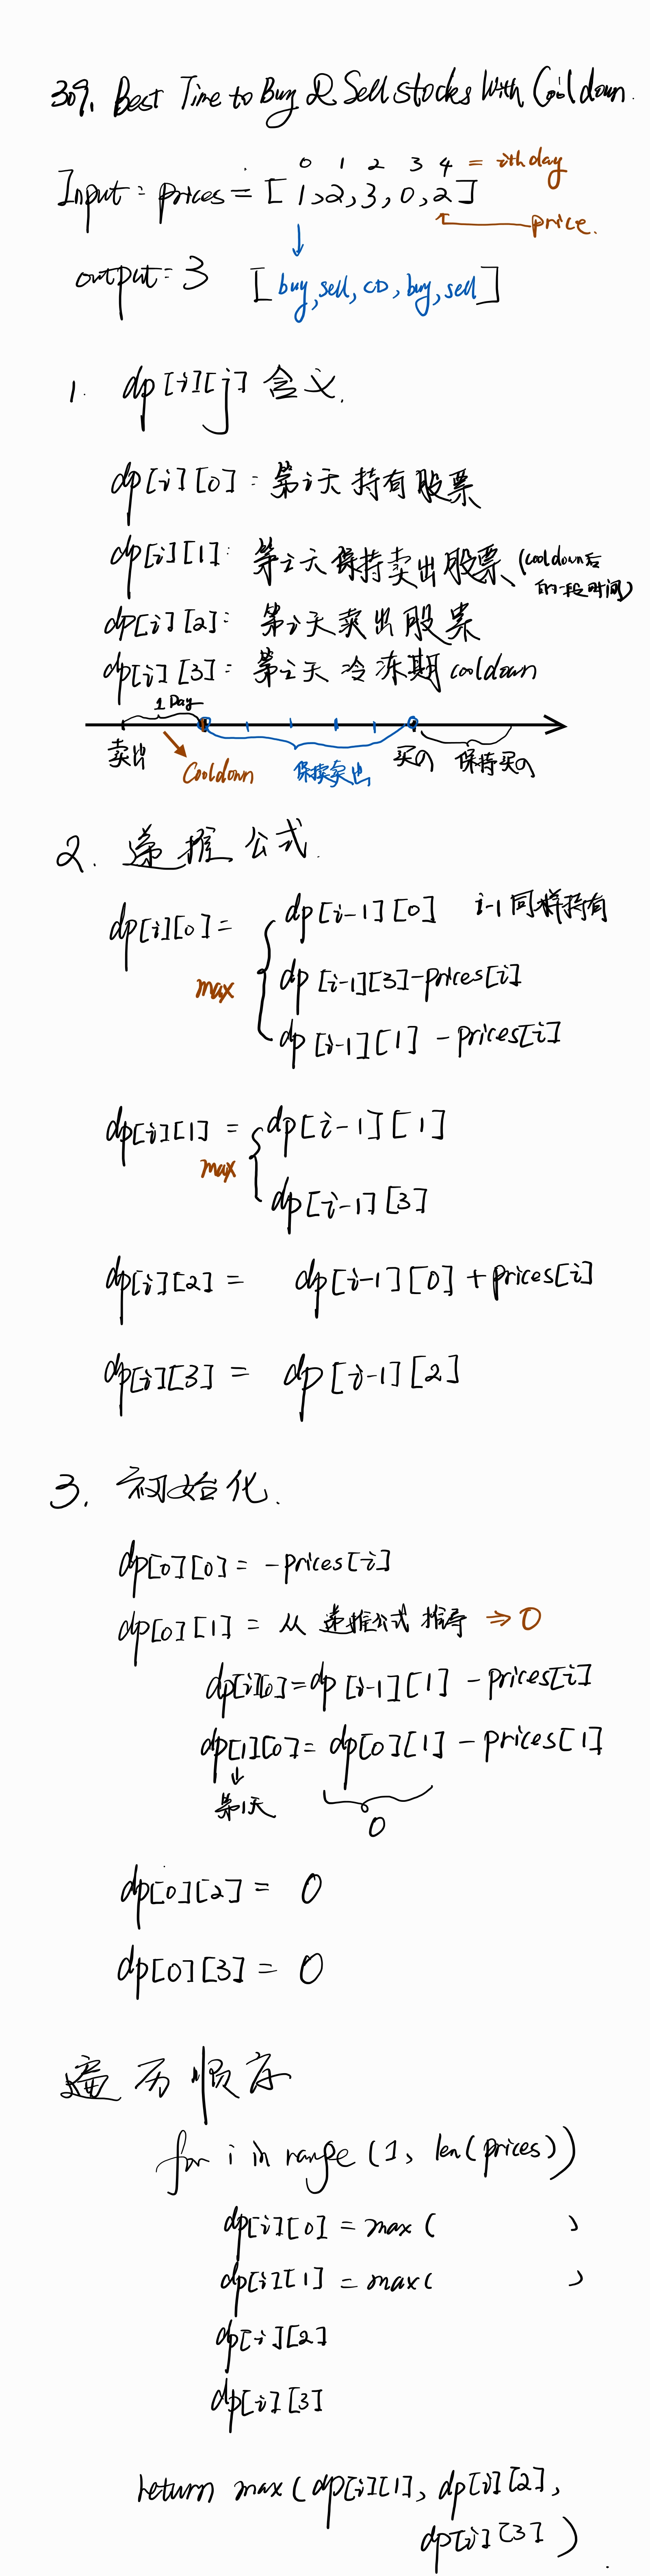 309. Best Time to Buy & Sell stocks With Cooldown.
0 1 2 3 4 = ith day
Input: prices = [1,2,3,0,2]
price.
output: 3 [buy, sell, CD, buy, sell]
1. dp[i][j] 含义.
dp[i][0]: 第i天持有股票
dp[i][1]: 第i天保持卖出股票 (cooldown后的一段时间)
dp[i][2]: 第i天卖出股票
dp[i][3]: 第i天冷冻期 cooldown
1 Day
卖出 Cooldown 保持卖出 买入 保持买入
2. 递推公式.
dp[i][0] = max
dp[i-1][0] i-1同样持有
dp[i-1][3]-prices[i]
dp[i-1][1] - prices[i]
dp[i][1] = max
dp[i-1][1]
dp[i-1][3]
dp[i][2] = dp[i-1][0] + prices[i]
dp[i][3] = dp[i-1][2]
3. 初始化.
dp[0][0] = -prices[i]
dp[0][1] = 从递推公式推导 ⇒ 0
dp[i][0] = dp[i-1][1] - prices[i]
dp[1][0] = dp[0][1] - prices[1]
↓
第1天 0
dp[0][2] = 0
dp[0][3] = 0
遍历顺序
for i in range (1, len(prices))
dp[i][0] = max ( )
dp[i][1] = max ( )
dp[i][2]
dp[i][3]
return max (dp[i][1], dp[i][2],
dp[i][3])